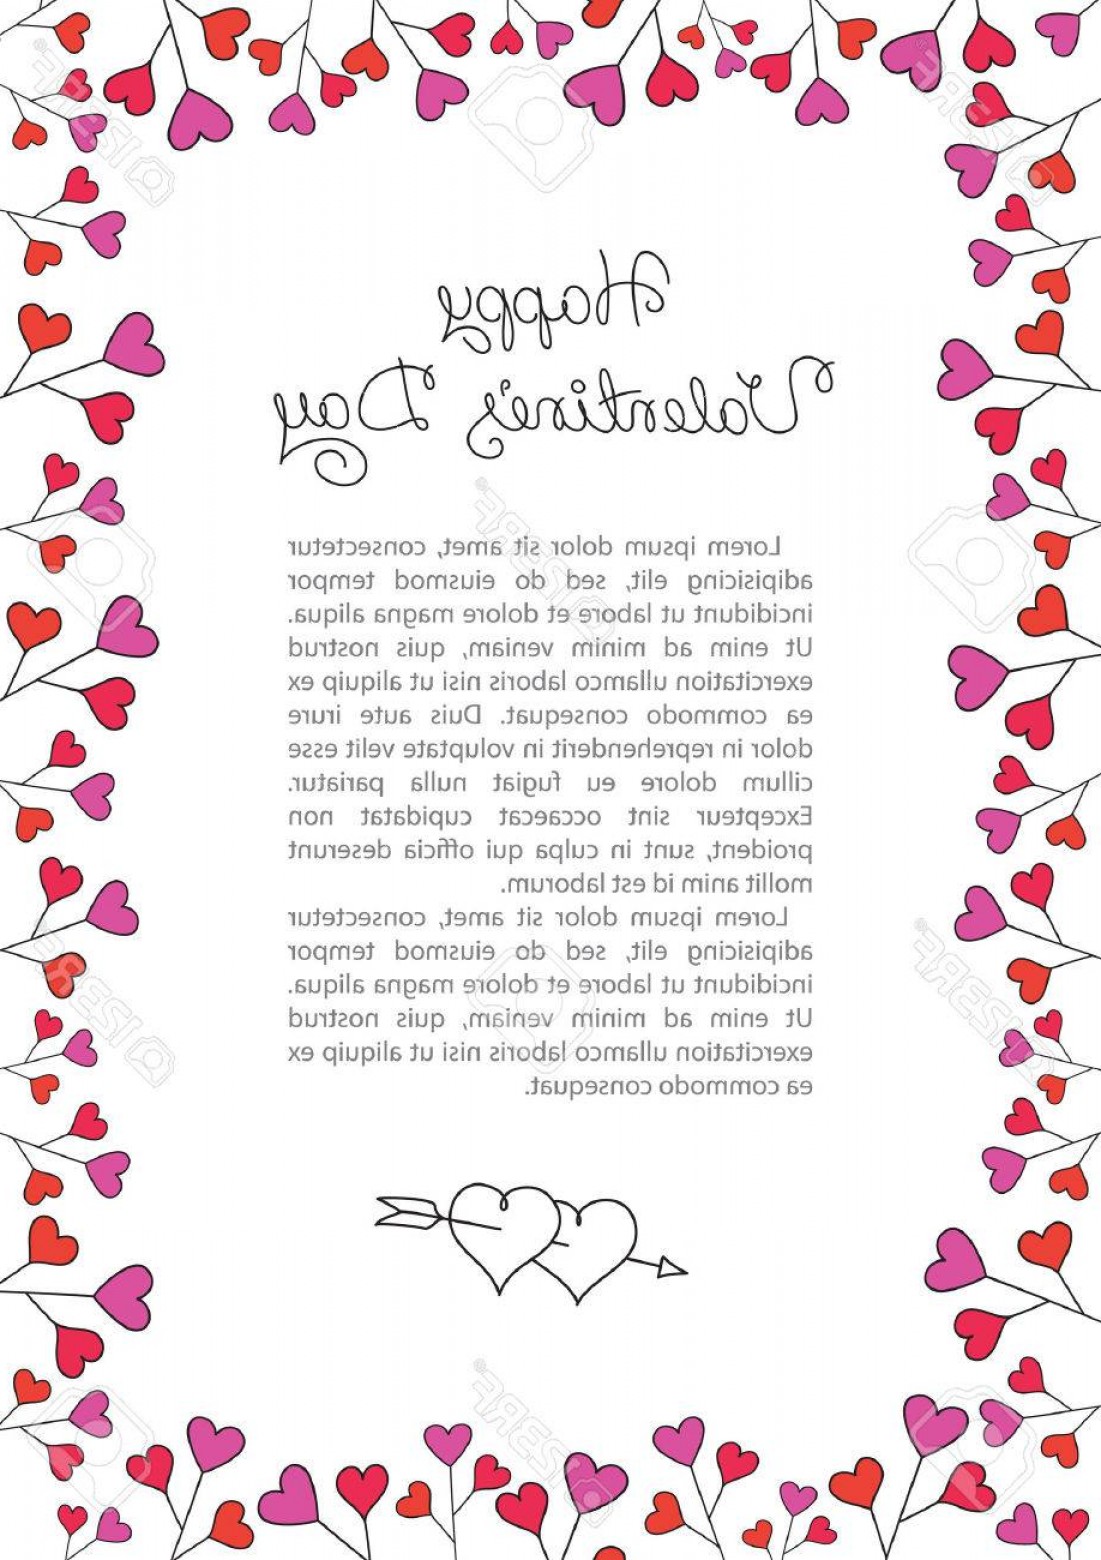 Happy
Valentine's Day
Lorem ipsum dolor sit amet, consectetur
adipisicing elit, sed do eiusmod tempor
incididunt ut labore et dolore magna aliqua.
Ut enim ad minim veniam, quis nostrud
exercitation ullamco laboris nisi ut aliquip ex
ea commodo consequat. Duis aute irure
dolor in reprehenderit in voluptate velit esse
cillum dolore eu fugiat nulla pariatur.
Excepteur sint occaecat cupidatat non
proident, sunt in culpa qui officia deserunt
mollit anim id est laborum.
Lorem ipsum dolor sit amet, consectetur
adipisicing elit, sed do eiusmod tempor
incididunt ut labore et dolore magna aliqua.
Ut enim ad minim veniam, quis nostrud
exercitation ullamco laboris nisi ut aliquip ex
ea commodo consequat.